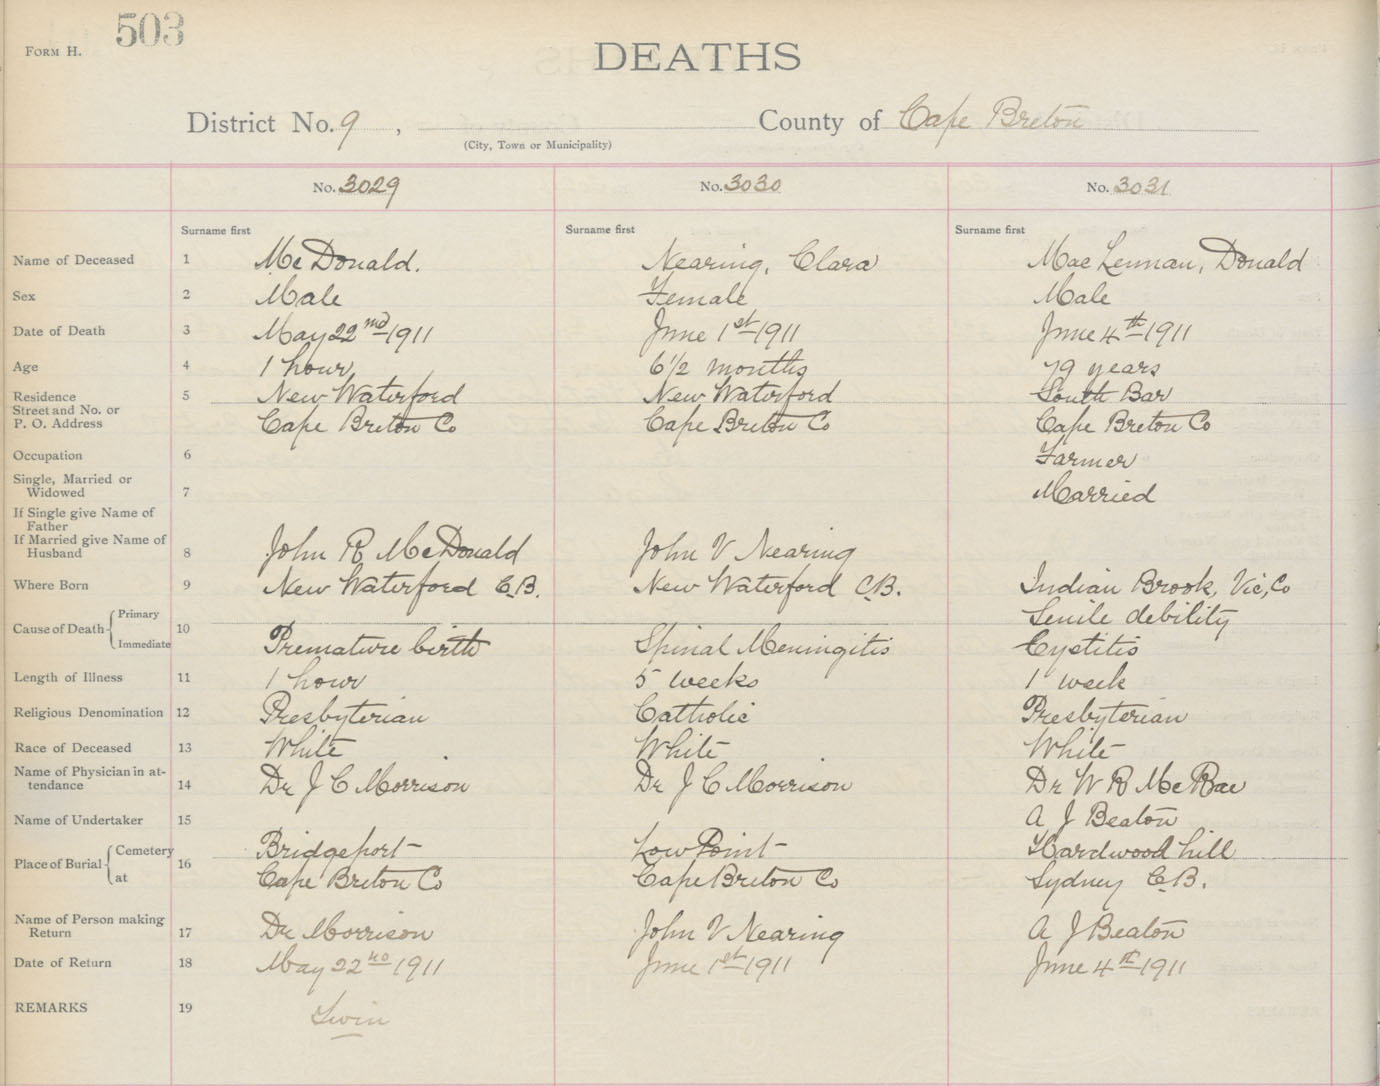 FORM H.
503
DEATHS
District No. 9 , County of Cape Breton
(City, Town or Municipality)
No. 3029 No. 3030 No. 3031
Surname first Surname first Surname first
Name of Deceased 1 McDonald. Nearing, Clara MacLennan, Donald
Sex 2 Male Female Male
Date of Death 3 May 22nd 1911 June 1st 1911 June 4th 1911
Age 4 1 hour 6 1/2 months 79 years
Residence 5 New Waterford New Waterford South Bar
Street and No. or
P. O. Address Cape Breton Co Cape Breton Co Cape Breton Co
Occupation 6 Farmer
Single, Married or
Widowed 7 Married
If Single give Name of
Father
If Married give Name of
Husband 8 John R McDonald John V Nearing
Where Born 9 New Waterford C.B. New Waterford C.B. Indian Brook, Vic, Co
Cause of Death Primary Senile debility
10 Immediate Premature birth Spinal Meningitis Cystitis
Length of Illness 11 1 hour 5 weeks 1 week
Religious Denomination 12 Presbyterian Catholic Presbyterian
Race of Deceased 13 White White White
Name of Physician in at-
tendance 14 Dr J C Morrison Dr J C Morrison Dr W R McRae
Name of Undertaker 15 A J Beaton
Place of Burial Cemetery Bridgeport Low Point Hardwood hill
16 at Cape Breton Co Cape Breton Co Sydney C.B.
Name of Person making
Return 17 Dr Morrison John V Nearing A J Beaton
Date of Return 18 May 22nd 1911 June 1st 1911 June 4th 1911
REMARKS 19 Twin